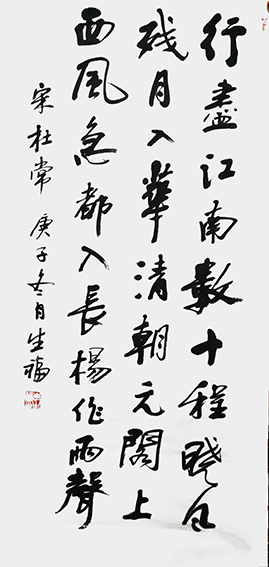 行盡江南數十程曉风
残月入華清朝元閣上
西風急都入長楊作雨聲
宋杜常 庚子冬月生福